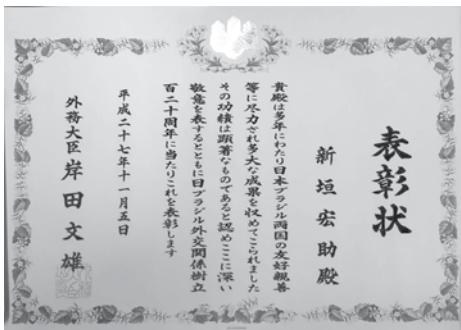 表彰状
新垣宏助殿
貴殿は多年にわたり日本ブラジル両国の友好親善
等に尽力され多大な成果を収めてこられました
その功績は顕著なものであると認めここに深い
敬意を表するとともに日ブラジル外交関係樹立
百二十周年に当たりこれを表彰します
平成二十七年十一月五日
外務大臣 岸田文雄